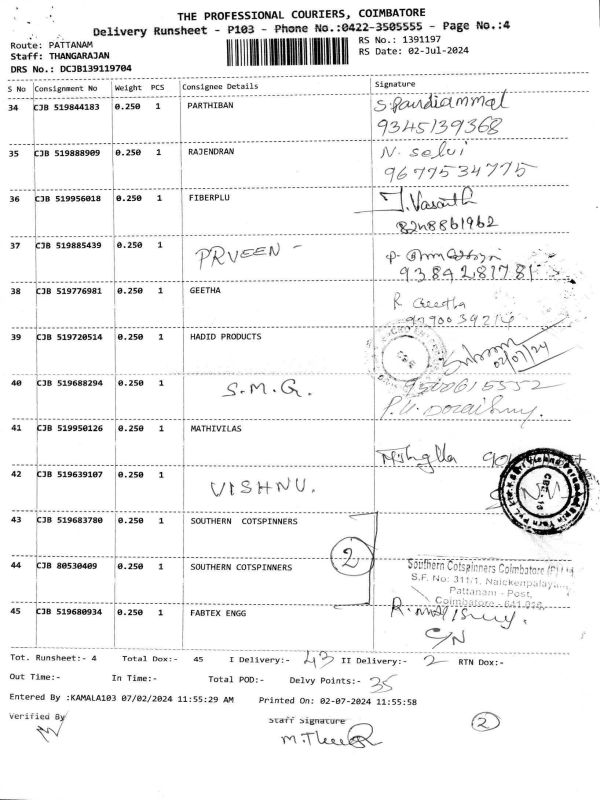 THE PROFESSIONAL COURIERS, COIMBATORE
Delivery Runsheet - P103 - Phone No.:0422-3505555 - Page No.:4
Route: PATTANAM
RS No.: 1391197
Staff: THANGARAJAN
RS Date: 02-Jul-2024
DRS No.: DCJB139119704
S No Consignment No Weight PCS Consignee Details Signature
34 CJB 519844183 0.250 1 PARTHIBAN S. Pandiammal
9345139368
35 CJB 519888909 0.250 1 RAJENDRAN N. Selvi
9677534775
36 CJB 519956018 0.250 1 FIBERPLU J. Vasanth
8248861962
37 CJB 519885439 0.250 1 PRVEEN -
9384281781
38 CJB 519776981 0.250 1 GEETHA R Geetha
39 CJB 519720514 0.250 1 HADID PRODUCTS
02/07/24
40 CJB 519688294 0.250 1 S.M.G. 9500615552
41 CJB 519950126 0.250 1 MATHIVILAS
42 CJB 519639107 0.250 1 VISHNU.
43 CJB 519683780 0.250 1 SOUTHERN COTSPINNERS
2
44 CJB 80530409 0.250 1 SOUTHERN COTSPINNERS Southern Cotspinners Coimbatore (P) Ltd
S.F. No: 311/1, Naickenpalayam,
Pattanam - Post,
Coimbatore - 641 016.
45 CJB 519680934 0.250 1 FABTEX ENGG
C/N
Tot. Runsheet:- 4 Total Dox:- 45 I Delivery:- 43 II Delivery:- 2 RTN Dox:-
Out Time:- In Time:- Total POD:- Delvy Points:- 35
Entered By :KAMALA103 07/02/2024 11:55:29 AM Printed On: 02-07-2024 11:55:58
Verified By Staff Signature 2